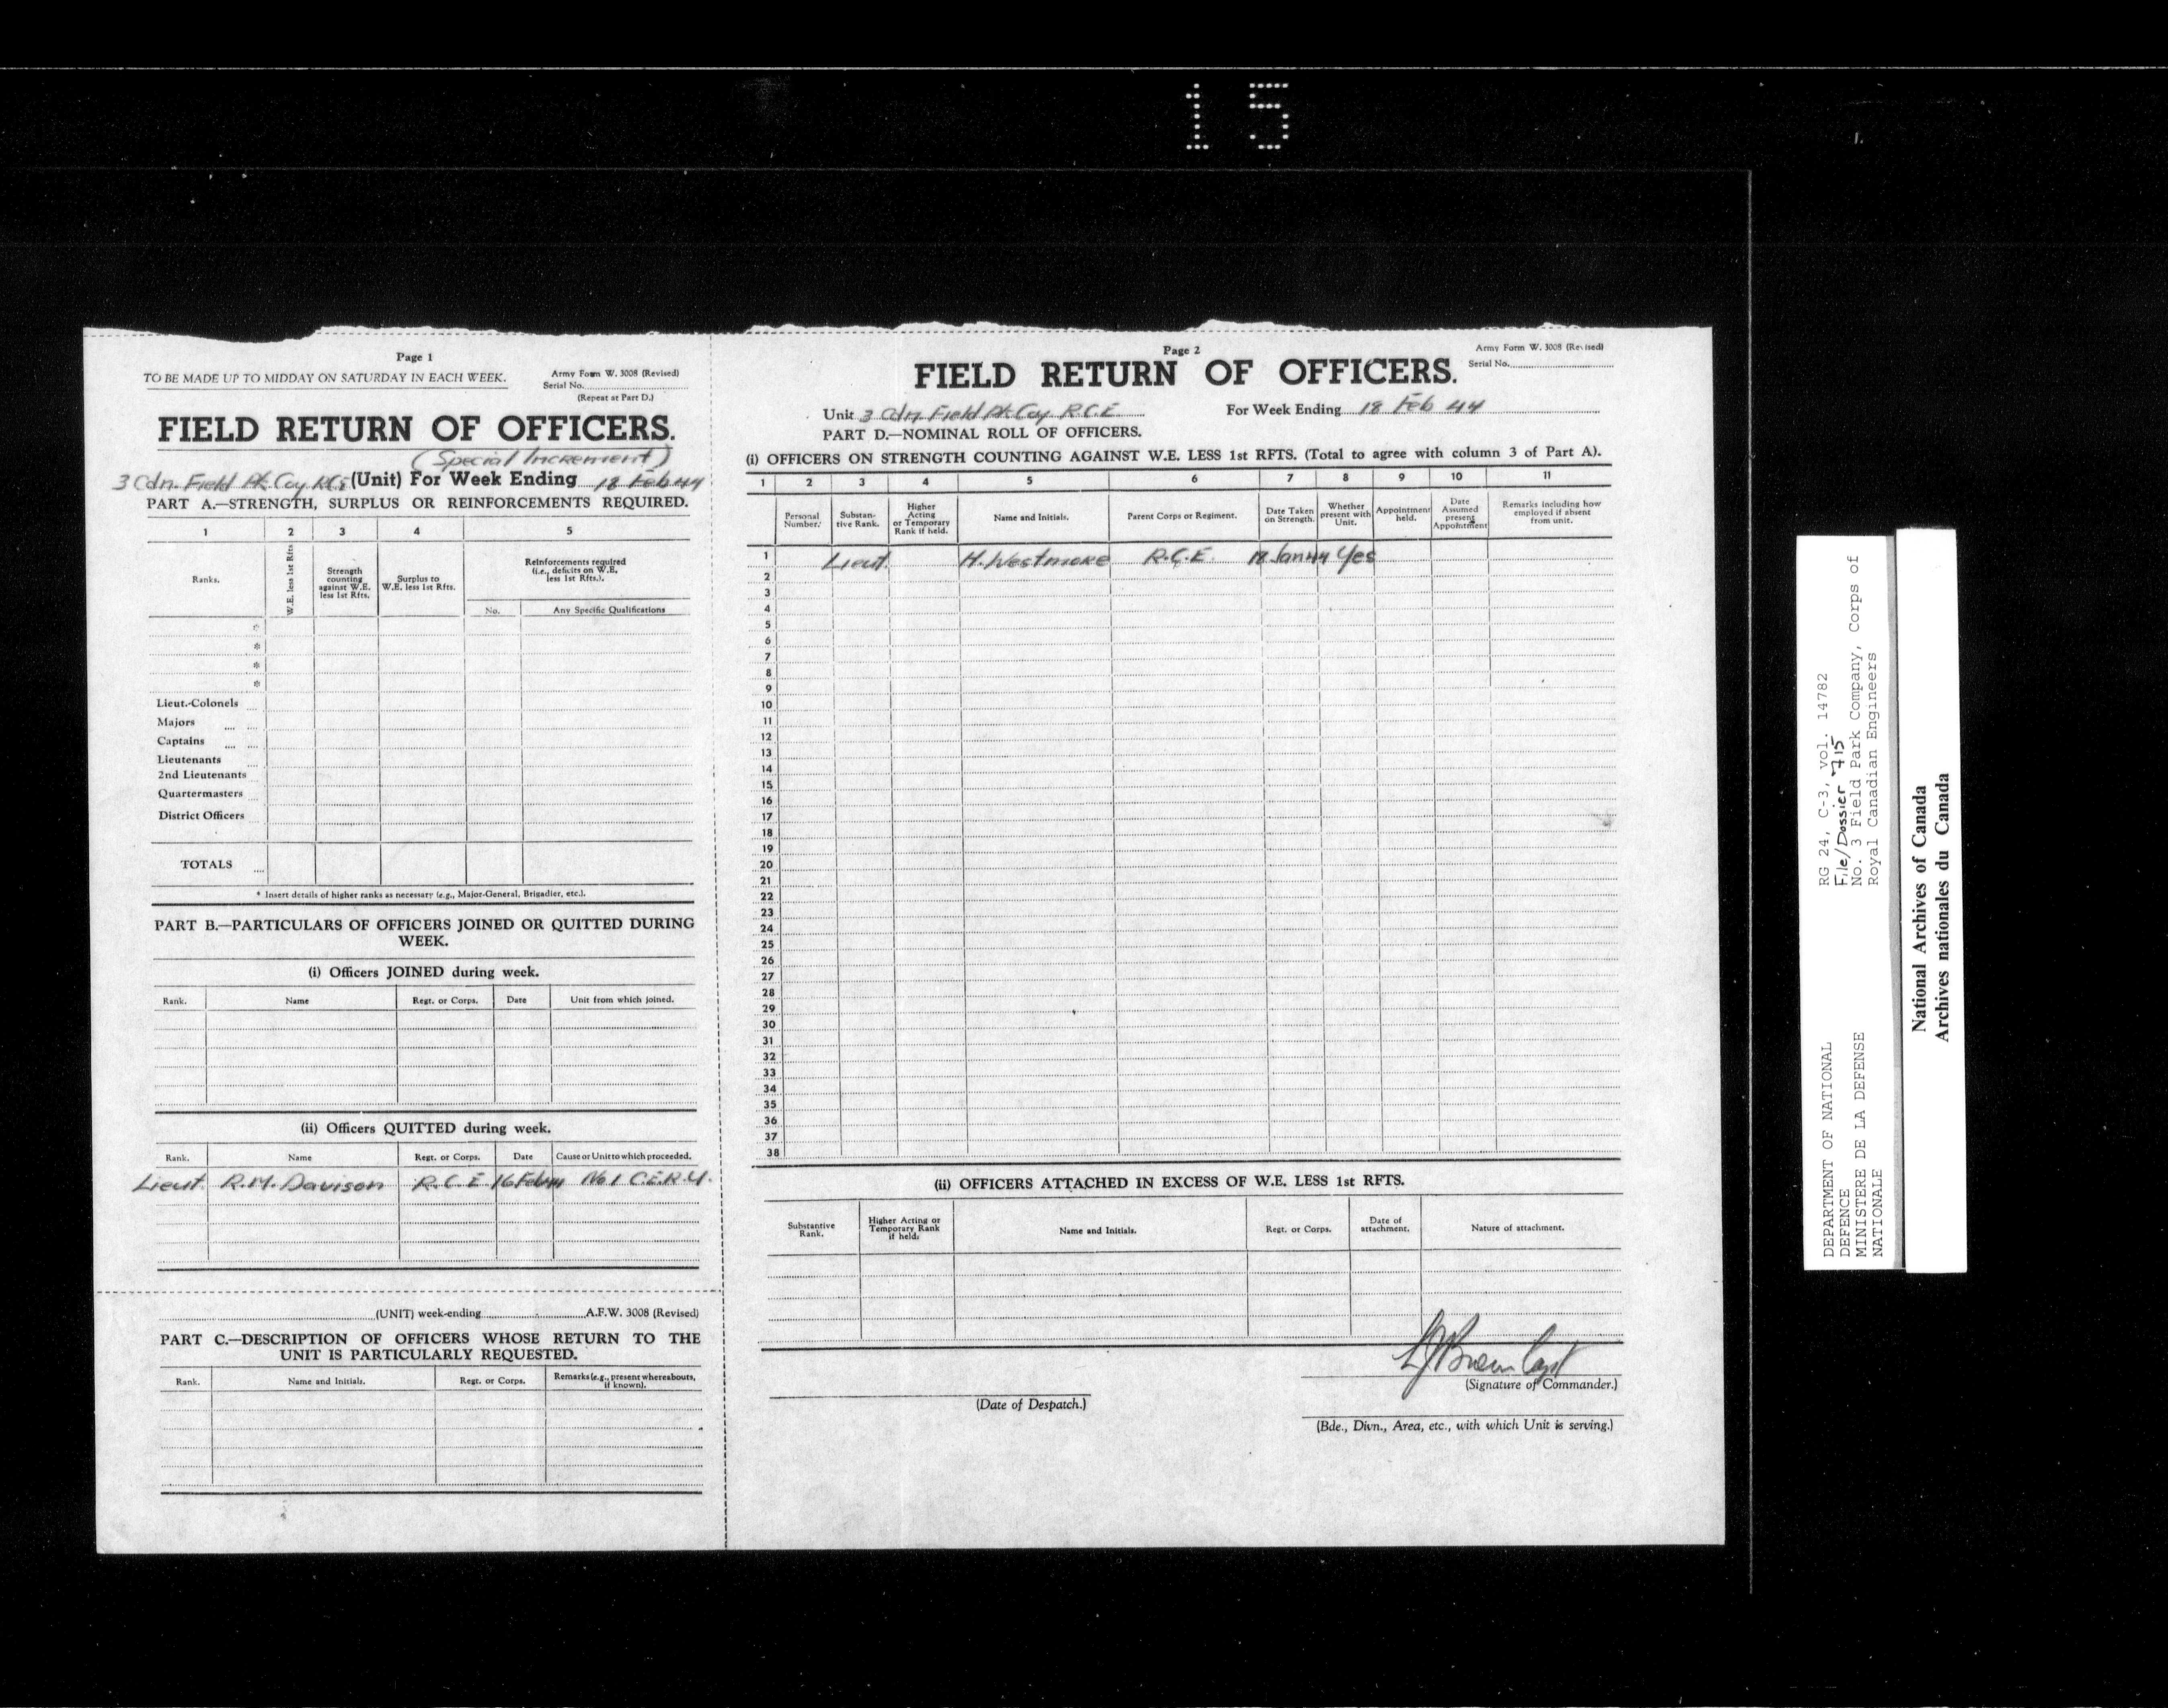 15
Page 1
TO BE MADE UP TO MIDDAY ON SATURDAY IN EACH WEEK.
Army Form W. 3008 (Revised)
Serial No.
(Repeat at Part D.)
FIELD RETURN OF OFFICERS.
(Special Increment)
3 Cdn. Field Pk. Coy RCE (Unit) For Week Ending 18 Feb 44
PART A.—STRENGTH, SURPLUS OR REINFORCEMENTS REQUIRED.
1 2 3 4 5
Ranks.
W.E. less 1st Rfts
Strength counting against W.E. less 1st Rfts.
Surplus to W.E. less 1st Rfts.
Reinforcements required (i.e., deficits on W.E. less 1st Rfts.).
No. Any Specific Qualifications
*
*
*
*
Lieut.-Colonels ...
Majors .... ...
Captains .... ....
Lieutenants ...
2nd Lieutenants ...
Quartermasters ...
District Officers ...
TOTALS ....
* Insert details of higher ranks as necessary (e.g., Major-General, Brigadier, etc.).
PART B.—PARTICULARS OF OFFICERS JOINED OR QUITTED DURING
WEEK.
(i) Officers JOINED during week.
Rank. Name Regt. or Corps. Date Unit from which joined.
(ii) Officers QUITTED during week.
Rank. Name Regt. or Corps. Date Cause or Unit to which proceeded.
Lieut. R.M. Davison R.C.E 16 Feb 44 No 1 C.E.R.U.
(UNIT) week-ending A.F.W. 3008 (Revised)
PART C.—DESCRIPTION OF OFFICERS WHOSE RETURN TO THE
UNIT IS PARTICULARLY REQUESTED.
Rank. Name and Initials. Regt. or Corps. Remarks (e.g., present whereabouts, if known).
Page 2
Army Form W. 3008 (Revised)
Serial No.
FIELD RETURN OF OFFICERS.
Unit 3 Cdn. Field Pk. Coy R.C.E For Week Ending 18 Feb 44
PART D.—NOMINAL ROLL OF OFFICERS.
(i) OFFICERS ON STRENGTH COUNTING AGAINST W.E. LESS 1st RFTS. (Total to agree with column 3 of Part A).
1 2 3 4 5 6 7 8 9 10 11
Personal Number.
Substantive Rank.
Higher Acting or Temporary Rank if held.
Name and Initials.
Parent Corps or Regiment.
Date Taken on Strength.
Whether present with Unit.
Appointment held.
Date Assumed present Appointment
Remarks including how employed if absent from unit.
1 Lieut. H. Westmore R.C.E. 18 Jan 44 Yes
2
3
4
5
6
7
8
9
10
11
12
13
14
15
16
17
18
19
20
21
22
23
24
25
26
27
28
29
30
31
32
33
34
35
36
37
38
(ii) OFFICERS ATTACHED IN EXCESS OF W.E. LESS 1st RFTS.
Substantive Rank.
Higher Acting or Temporary Rank if held.
Name and Initials.
Regt. or Corps.
Date of attachment.
Nature of attachment.
Capt
(Signature of Commander.)
(Date of Despatch.)
(Bde., Divn., Area, etc., with which Unit is serving.)
DEPARTMENT OF NATIONAL
DEFENCE
MINISTERE DE LA DEFENSE
NATIONALE
RG 24, C-3, vol. 14782
File/Dossier 715
No. 3 Field Park Company, Corps of
Royal Canadian Engineers
National Archives of Canada
Archives nationales du Canada